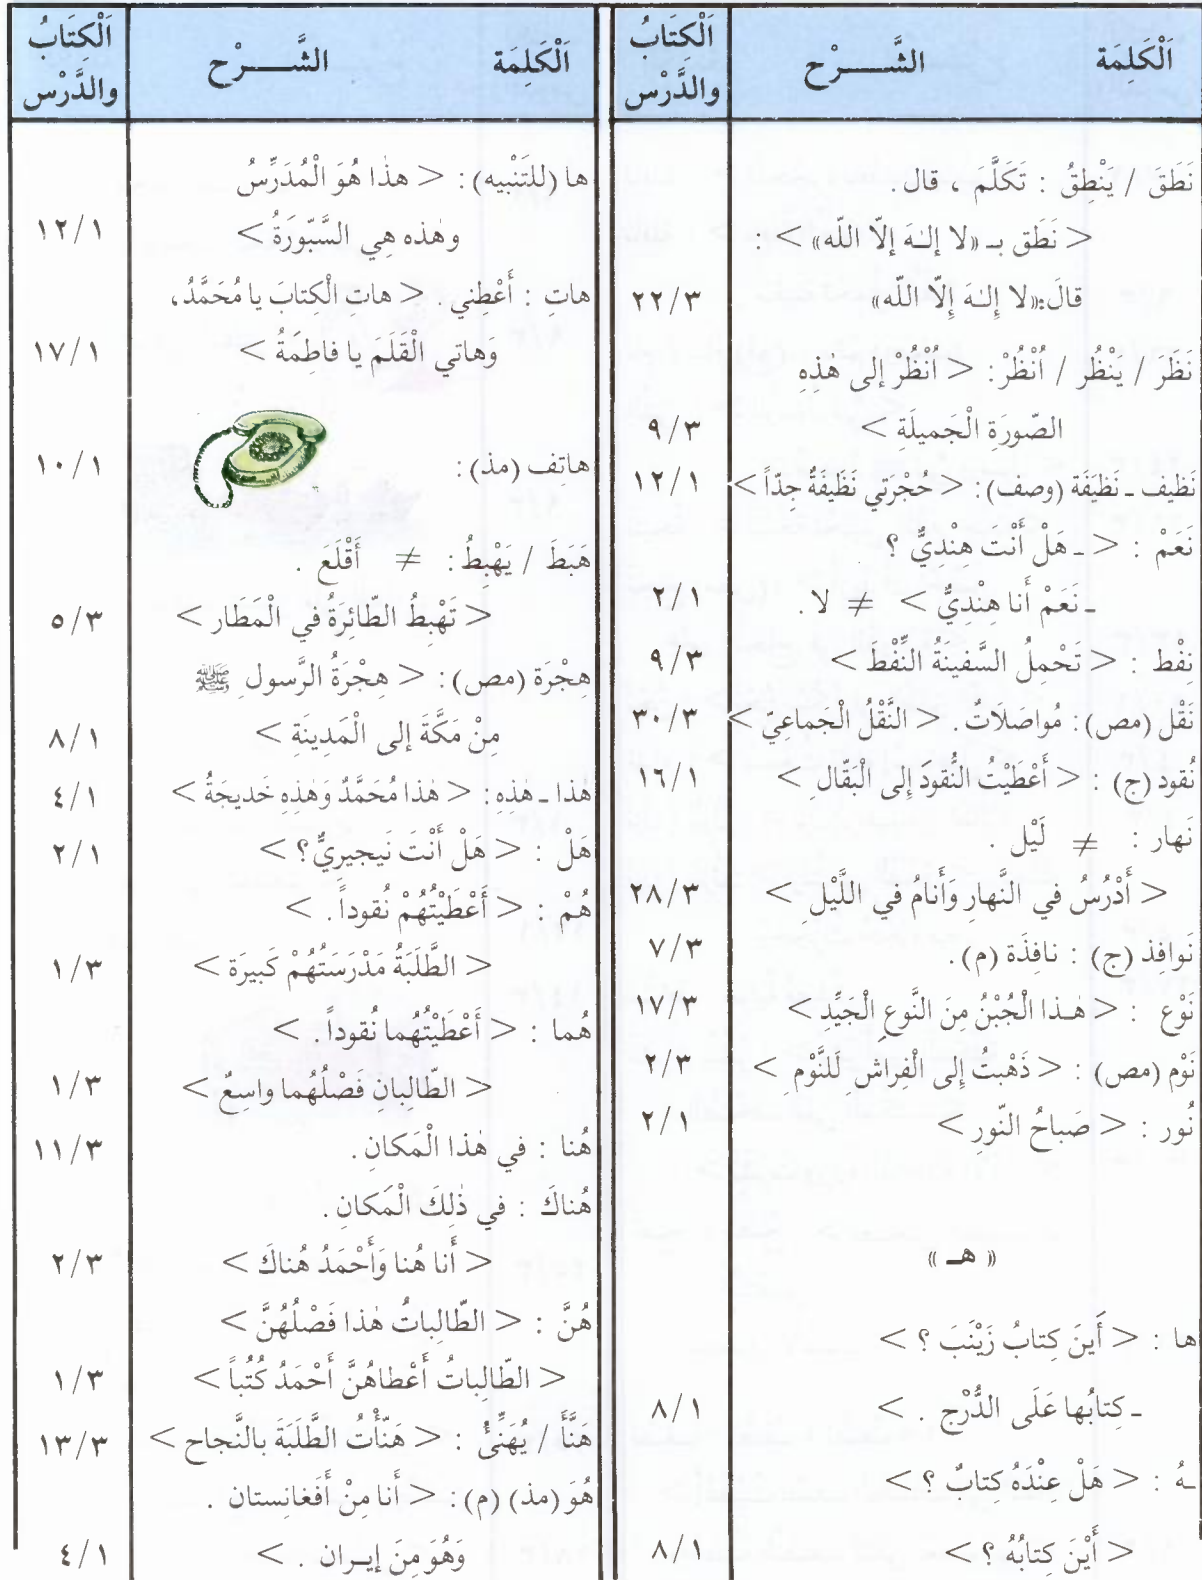 اَلْكَلِمَة الشَّــــرْح اَلْكِتَابُ والدَّرْس
نَطَقَ / يَنْطِقُ : تَكَلَّمَ ، قال.
< نَطَق بـ «لا إلـٰهَ إلّا اللّه» > :
قالَ:«لا إِلـٰهَ إِلّا اللّه» ٢٢/٣
نَظَرَ / يَنْظُر / اُنْظُرْ: < اُنْظُرْ إلى هٰذِهِ
الصّورَةِ الْجَميلَةِ > ٩/٣
نَظيف ـ نَظيَفَة (وصف): < حُجْرَتي نَظيفَةٌ جِدّاً > ١٢/١
نَعَمْ : < ـ هَلْ أَنْتَ هِنْدِيٌّ ؟
ـ نَعَمْ أَنا هِنْدِيٌّ > ≠ لا. ٢/١
نِفْط : < تَحْمِلُ السَّفينَةُ النِّفْطَ > ٩/٣
نَقْل (مص): مُواصَلَاتٌ. < النَّقْلُ الْجَماعِيّ > ٣٠/٣
نُقود (ج) : < أَعْطَيْتُ النُّقودَ إِلى الْبَقّالِ > ١٦/١
نَهار : ≠ لَيْل .
< أَدْرُسُ في النَّهارِ وَأَنامُ في اللَّيْلِ > ٢٨/٣
نَوافِذ (ج) : نافِذَة (م). ٧/٣
نَوْع : < هـٰذا الْجُبْنُ مِنَ النَّوعِ الْجَيِّدِ > ١٧/٣
نَوْم (مص) : < ذَهْبتُ إِلى الْفِراشِ لَلنَّوْمِ > ٢/٣
نُور : < صَباحُ النّورِ > ٢/١
« هـ »
ها : < أَينَ كِتابُ زَيْنَبَ ؟ >
ـ كِتابُها عَلَى الدُّرْجِ . > ٨/١
ـهُ : < هَلْ عِنْدَهُ كِتابٌ ؟ >
< أَيْنَ كِتابُهُ ؟ > ٨/١
اَلْكَلِمَة الشَّــــرْح اَلْكِتَابُ والدَّرْس
ها (للتَنْبيه) : < هٰذا هُوَ الْمُدَرِّسُ
وهٰذه هِي السَّبّورَةُ > ١٢/١
هاتِ : أَعْطِني . < هاتِ الْكِتابَ يا مُحَمَّدُ،
وَهاتي الْقَلَمَ يا فاطِمَةُ > ١٧/١
هاتِف (مذ) : ١٠/١
هَبَطَ / يَهْبِطُ : ≠ أَقْلَعَ .
< تَهْبِطُ الطّائِرَةُ في الْمَطَار > ٥/٣
هِجْرَة (مص) : < هِجْرَةُ الرَّسول ﷺ
مِنْ مَكَّةَ إلى الْمَدِينَةِ > ٨/١
هٰذا ـ هٰذه : < هٰذا مُحَمَّدٌ وَهٰذِهِ خَديجَةُ > ٤/١
هَلْ : < هَلْ أَنْتَ نَيجيريٌّ؟ > ٢/١
هُمْ : < أَعْطَيْتُهُمْ نُقوداً . >
< الطَّلَبَةُ مَدْرَسَتُهُمْ كَبيرَة > ١/٣
هُما : < أَعْطَيْتُهُما نُقوداً . >
< الطّالِبانِ فَصْلُهُما واسِعٌ > ١/٣
هُنا : في هٰذا الْمَكانِ. ١١/٣
هُناكَ : في ذٰلِكَ الْمَكانِ.
< أَنا هُنا وَأَحْمَدُ هُناكَ > ٢/٣
هُنَّ : < الطّالِباتُ هٰذا فَصْلُهُنَّ >
< الطّالِباتُ أَعْطاهُنَّ أَحْمَدُ كُتُباً > ١/٣
هَنَّأَ / يُهَنِّئُ : < هَنّأْتُ الطَّلَبَةَ بالنَّجاح > ١٣/٣
هُوَ (مذ) (م) : < أَنا مِنْ أَفَغانِستان .
وَهُوَ مِنَ إيـران . > ٤/١